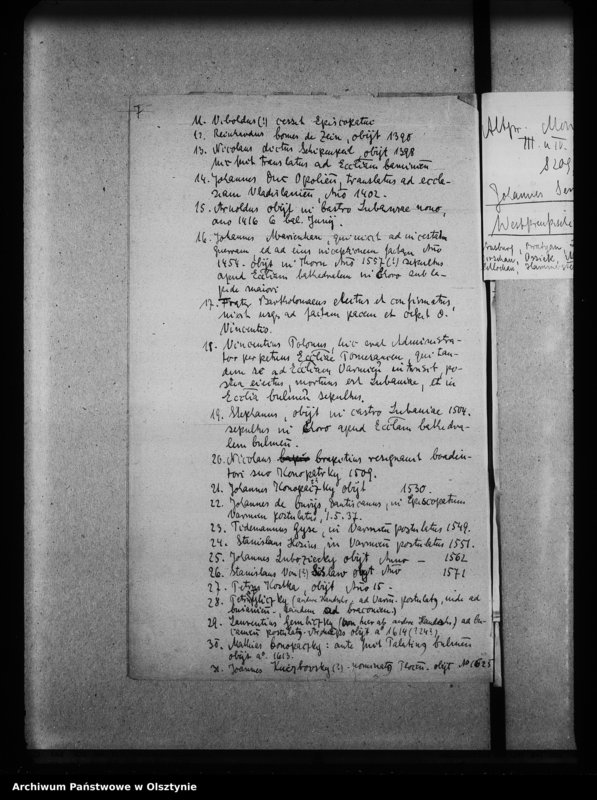 7
11. Viboldus(?) cessit Episcopatui
12. Reinhardus Comes de Zein, obijt 1390
13. Nicolaus dictus Schipenpeil, obijt 1398
hic fuit translatus ad Eccliam Caminen
14. Johannes Dux Opolien, translatus ad eccle-
siam Vladislavien, Año 1402.
15. Arnoldus obijt in Castro Lubaviae novo,
año 1416 6 Cal. Junij.
16. Johannes Marienhau, qui vixit ad incertam
guerram ed ad eius inceptionem factam Año
1454. obijt in Thorn Año 1557(?) sepultus
apud Ecclliam Cathedralem in Choro sub la-
pide maiori
17. Frater Bartholomaeus electus et confirmatus,
vixit usq ad factam pacem et cessit D.
Vincentio.
18. Vincentius Polonus, hic erat Administra-
tor perpetuus Eccliae Pomezanien, qui tan-
dem se ad Eccliam Varmien intrusit, po-
stea eiectus, mortuus est Lubaviae, et in
Ecclia Culmen sepultus.
19. Stephanus, obijt in castro Lubaviae 1504.
sepultus in Choro apud Eccliam Cathedra-
lem Culmen.
20. Nicolaus Crapitius resignavit Coadiu-
tori suo Konopatzky 1509.
21. Johannes Konopaczky obijt 1530.
22. Johannes de Curijs Dantiscanus, in Episcopatum
Varmien postulatus, 1.5.37.
23. Tidemannus Gyse, in Varmien postulatus 1549.
24. Stanislaus Hosius, in Varmien postulatus 1551.
25. Johannes Lubodziecky obijt Anno — 1562
26. Stanislaus Obijt Año 1571
27. Petrus Kostka, obijt Año 15 -
28. ad Varm. postulatus, inde ad
29. Laurentius Gembiczky
postulatus obijt aº 1614 (?24?)
30. Mathias Conopaczky: ante fuit Palatinus Culmen
obijt aº. 1613.
31. Joannes Kuczborsky(?) - nominatus obijt Aº 1625
Altpr. Mon
III. u IV.
S 209
Johannes Sem
Westpreussische
Archiwum Państwowe w Olsztynie